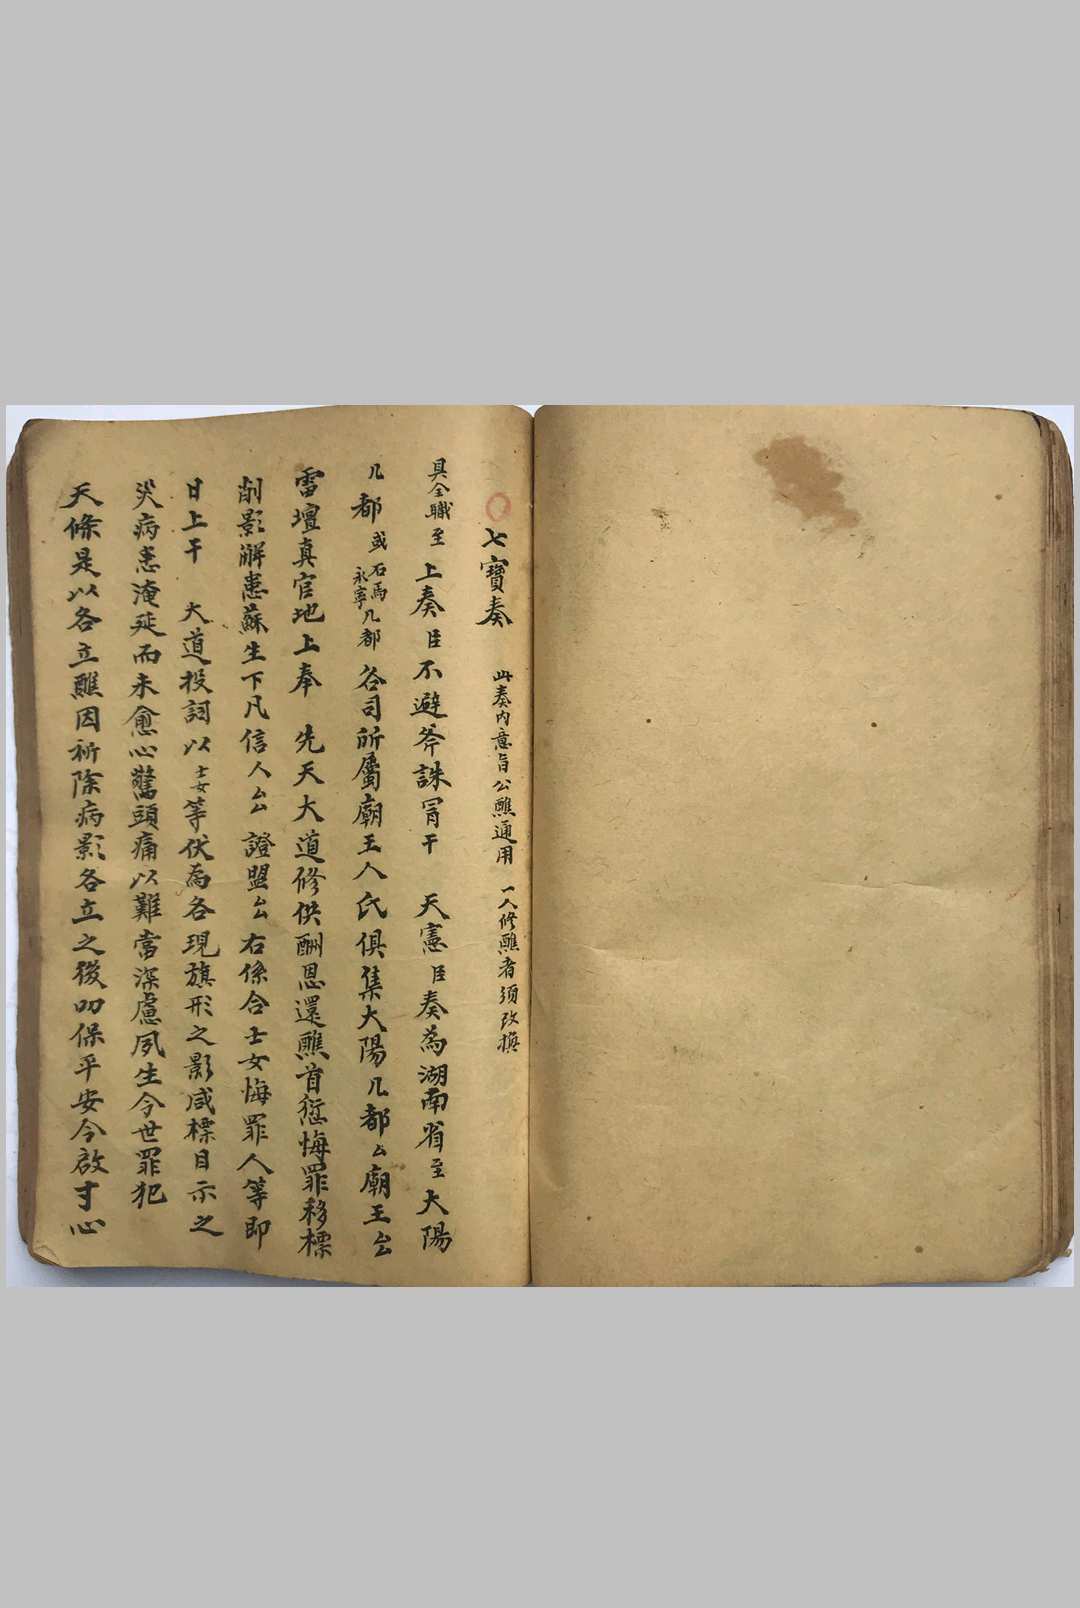 七寶奏 此奏內意旨公醮通用 一人修醮者須改換
具全職至 上奏臣不避斧誅冐干 天憲臣奏為湖南省至大陽
几都或石馬永寧几都 各司所屬廟王人氏俱集大陽几都厶廟王厶
雷壇真官地上奉 先天大道修供酬恩還醮首愆悔罪移標
削影解患蘇生下凡信人厶 證盟厶右係合士女悔罪人等即
日上干 大道投詞以士女等伏為各現旗形之影咸標目示之
災病患淹延而未愈心驚頭痛以難當深慮夙生今世罪犯
天條是以各立醮因祈除病影各立之後叩保平安今啟寸心